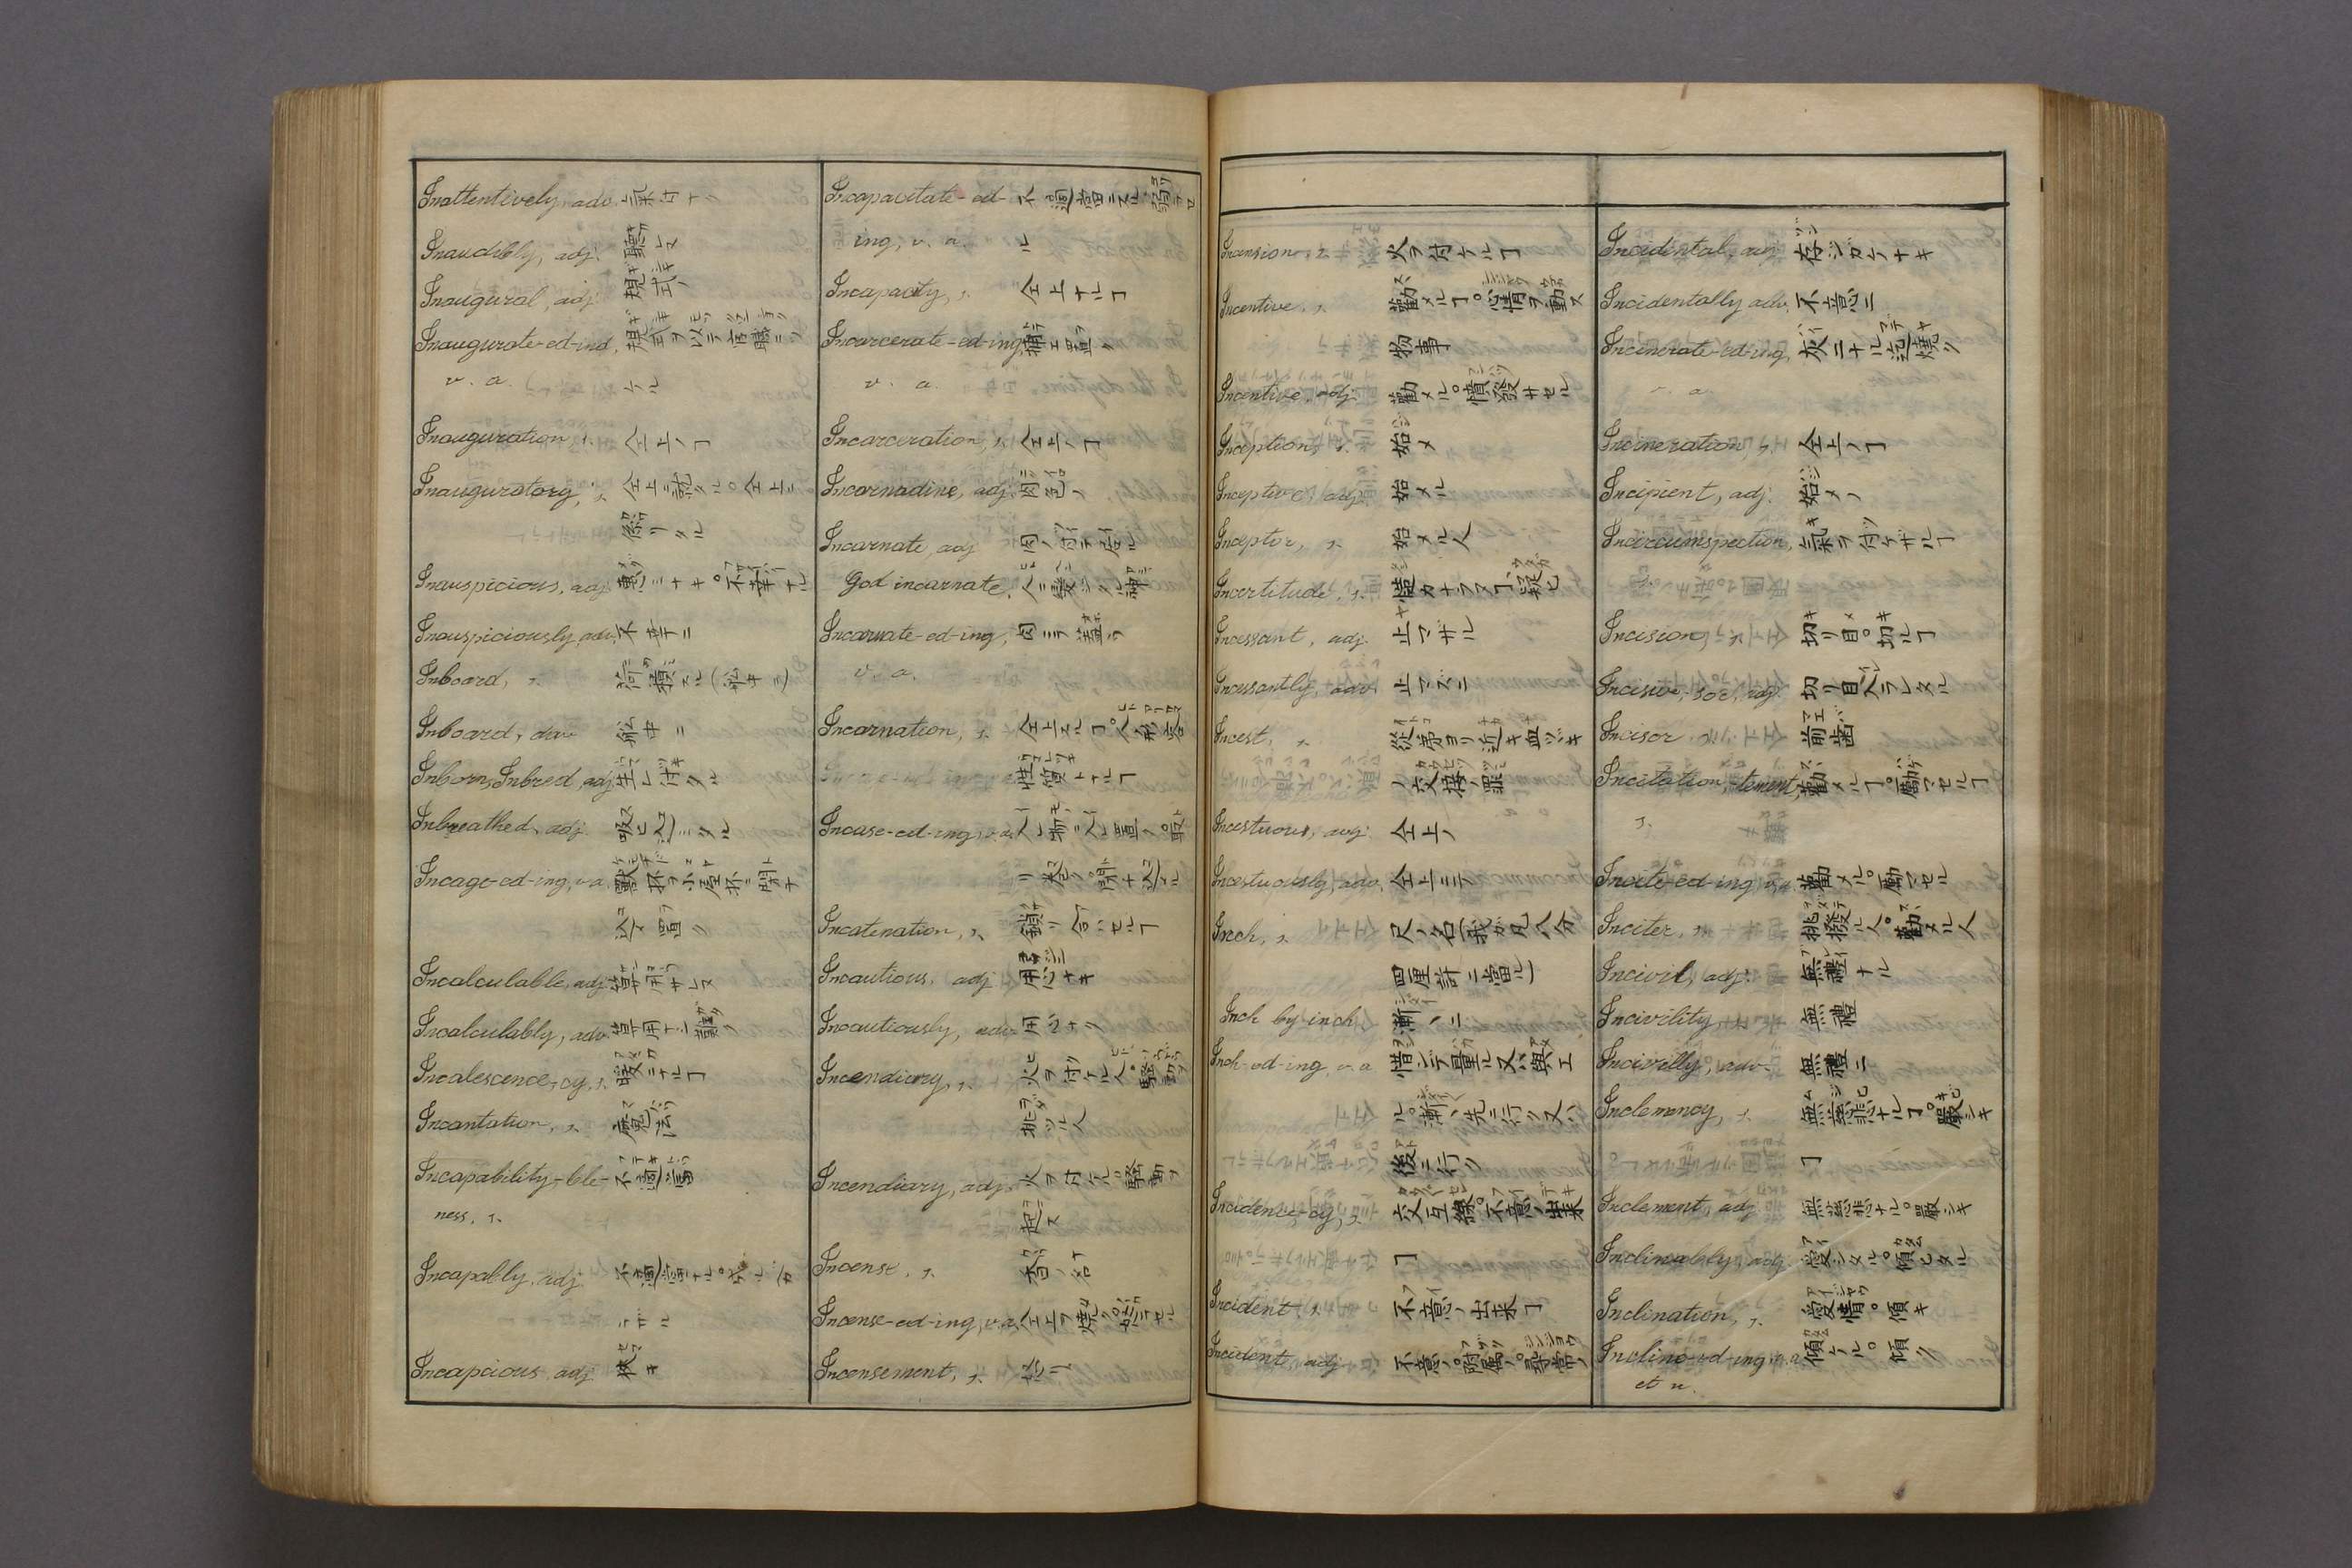 Inattentively, adv. 氣付ナク
Inaudibly, adj. 聽レヌ
Inaugural, adj. 規式ノ
Inaugurate-ed-ing, 規式ヲ以テ官職ニツ
v. a. ケル
Inauguration, s. 仝上ノヿ
Inauguratory, s. 仝上ニ就タル。仝上ニ
係リタル
Inauspicious, adj. 惠ミナキ。不幸ナル
Inauspiciously, adv. 不幸ニ
Inboard, s. 荷積スル(舩中ニ)
Inboard, adv. 舩中ニ
Inborn, Inbred, adj. 生レ付キタル
Inbreathed, adj. 吸ヒ込ミタル
Incage-ed-ing, v. a. 獸抔ヲ小屋抔ニ閉チ
込テ置ク
Incalculable, adj. 算用サレヌ
Incalculably, adv. 算用シ難ク
Incalescence, cy, s. 暖ニナルヿ
Incantation, s. 魔法
Incapability,-ble- 不適當
ness, s.
Incapably, adj. 不適當ナル。
ラザル
Incapacious, adj. 狹キ
Incapacitate-ed- 不適當ニスル。弱ラセ
ing, v. a. ル
Incapacity, s. 仝上ナルヿ
Incarcerate-ed-ing, 捕エ置ク
v. a.
Incarceration, s. 仝上ノヿ
Incarnadine, adj. 肉色ノ
Incarnate, adj. 肉ノ付テ居ル
God incarnate. 人ニ變シタル神
Incarnate-ed-ing, 肉ニテ蓋フ
v. a.
Incarnation, s. 仝上スルヿ。人ノ形姿
性質トナルヿ
Incase-ed-ing, v. a. 入レ物ニ入レ置ク。取
リ卷ク。閉ヂ込メル
Incatenation, s. 鎖リ合ハセルヿ
Incautious, adj. 用心ナキ
Incautiously, adv. 用心ナク
Incendiary, s. 火ヲ付ケル人。騷動ヲ
挑ハツル人
Incendiary, adj. 火ヲ付ケル。騷動ヲ
起ス
Incense, s. 香ノ名
Incense-ed-ing, v. a. 仝上ヲ燒ク。怒ラセル
Incensement, s. 怒リ
Incension, s. 火ヲ付ケルヿ
Incentive, s. 勸メルヿ。心情ヲ動ス
物事
Incentive, adj. 勸メル。憤發サセル
Inception, s. 始メ
Inceptive, adj. 始メル
Inceptor, s. 始メル人
Incertitude, s. 慥カナラヌヿ。疑ヒ
Incessant, adj. 止マザル
Incessantly, adv. 止マズニ
Incest, s. 從弟ヨリ近キ血ツヾキ
ノ交接ノ罪
Incestuous, adj. 仝上ノ
Incestuously, adv. 仝上ニテ
Inch, s. 尺ノ名(我カ凡八分
四厘許ニ當ル)
Inch by inch, 漸々ニ
Inch-ed-ing, v. a. 惜シテ量ル又ハ與エ
ル。漸々先ニ行ク又ハ
後ニ行ク
Incidence, cy, s. 交互線。不意ノ出來
ヿ
Incident, s. 不意ノ出來ヿ
Incident, adj. 不意ノ。附屬ノ。尋常ノ
Incidental, adj. 存ジガケナキ
Incidentally, adv. 不意ニ
Incinerate-ed-ing, 灰ニナル迄燒ク
v. a.
Incineration, s. 仝上ノヿ
Incipient, adj. 始メノ
Incircumspection, 氣ヲ付ケザルヿ
Incision, s. 切リ目。切ルヿ
Incisive,-soe, adj. 切リ目入ラレタル
Incisor 前齒
Incitation,-tement, 勸メルヿ。勵マセルヿ
s.
Incite-ed-ing, v. a. 勸メル。勵マセル
Inciter, s. 挑撥ル人。勸メル人
Incivil, adj. 無禮ナル
Incivility, s. 無禮
Incivilly, adv. 無禮ニ
Inclemency, s. 無慈悲ナルヿ。嚴シキ
ヿ
Inclement, adj. 無慈悲ナル。嚴シキ
Inclinably, adj. 愛シタル。傾ヒタル
Inclination, s. 愛情。傾キ
Incline-ed-ing, v. a. 傾ケル。傾ク
et n.